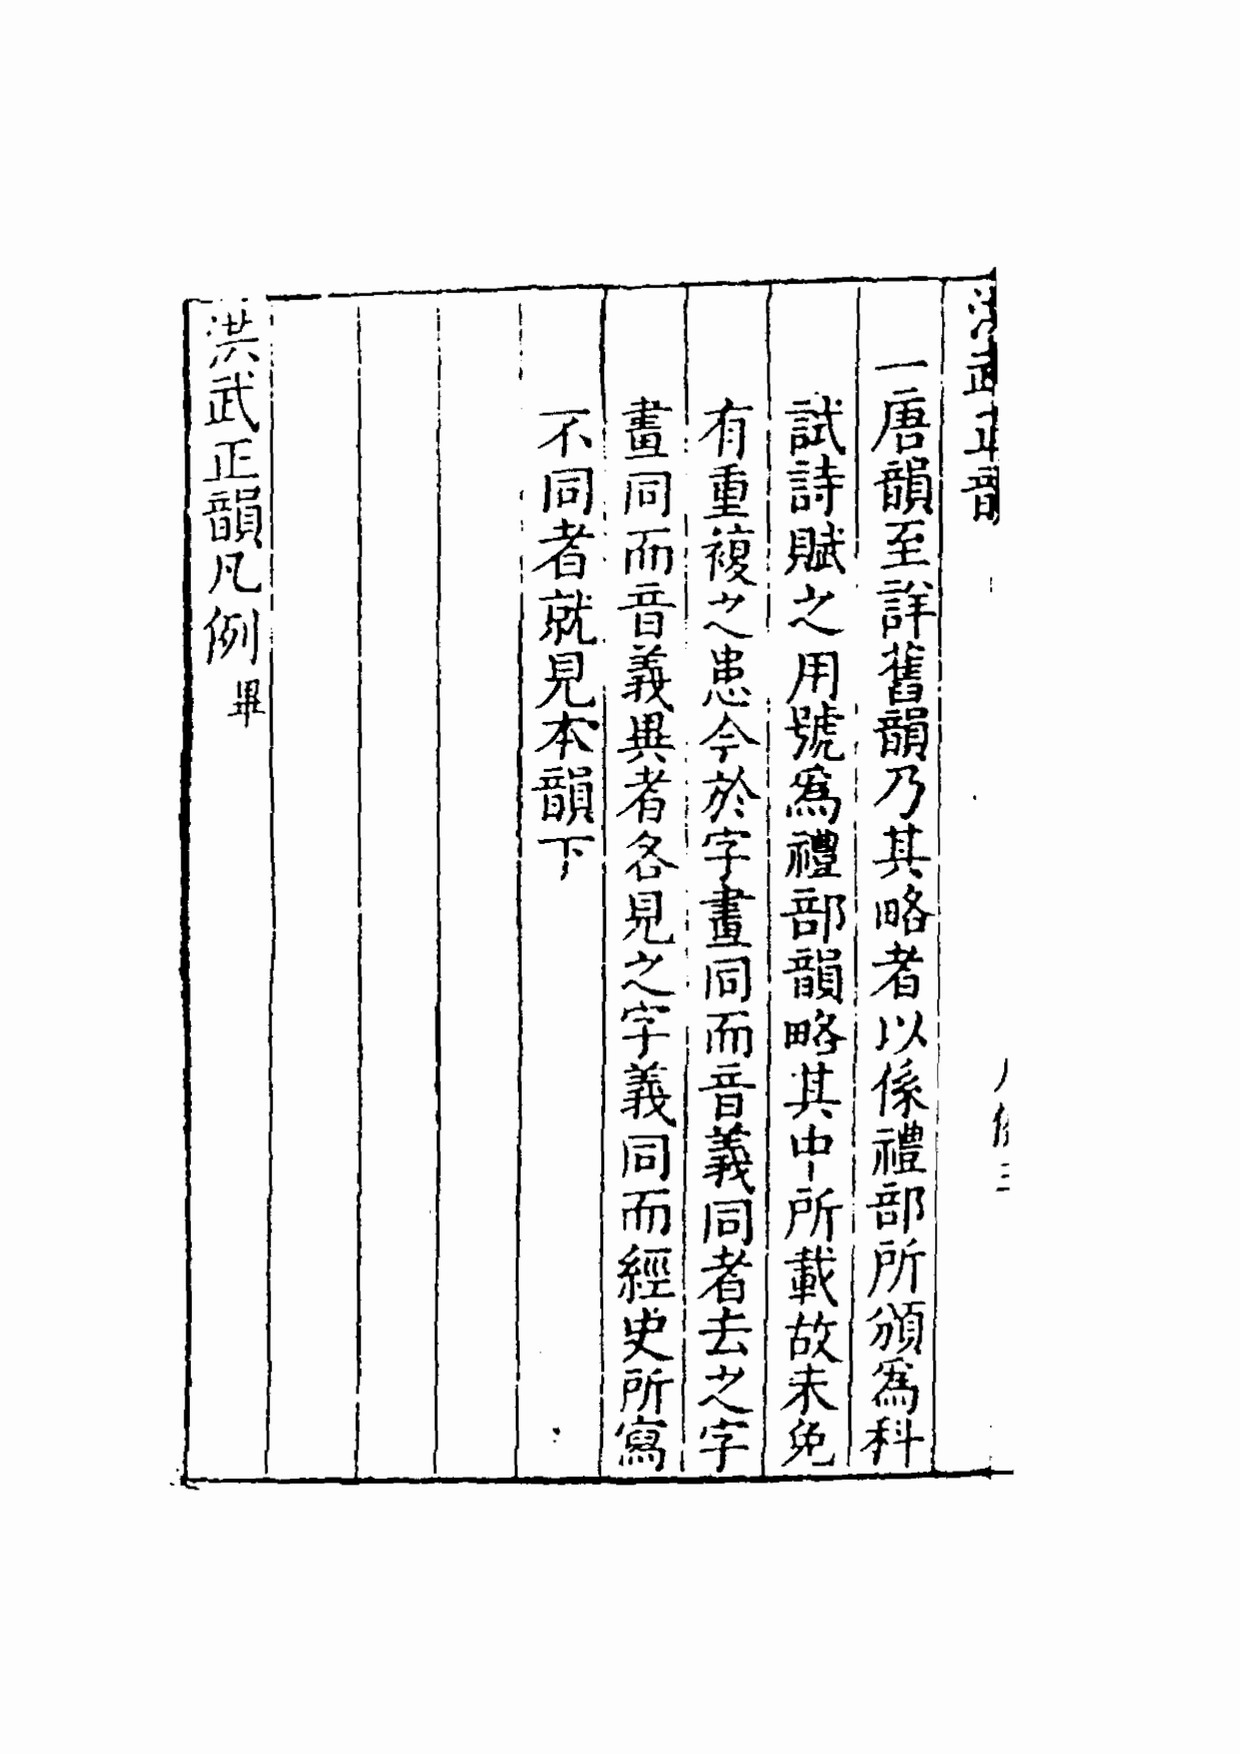 洪武正韻
一唐韻至詳舊韻乃其略者以係禮部所頒爲科
試詩賦之用號爲禮部韻略其中所載故未免
有重複之患今於字畫同而音義同者去之字
畫同而音義異者各見之字義同而經史所寫
不同者就見本韻下
洪武正韻凡例畢